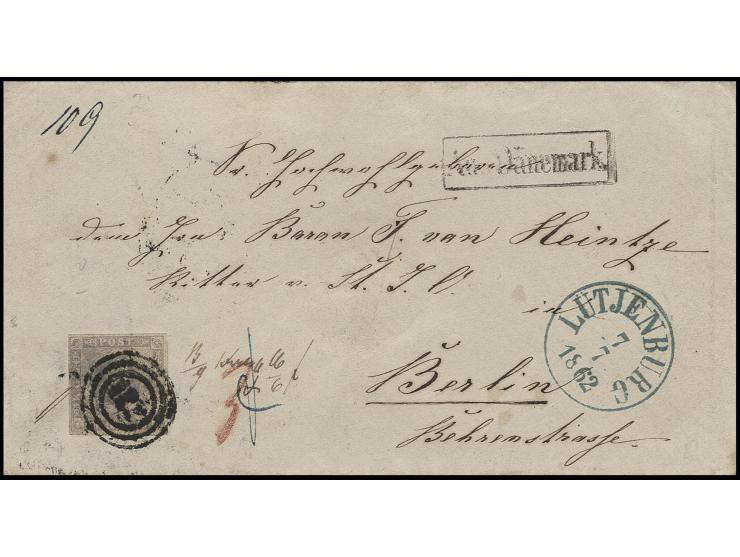 109
Aus Dänemark
Sr. Hochwohlgeboren
dem Hrn: Baron F. von Heintze
Ritter v. St. J. O.
in
Berlin
Behrenstrasse.
LÜTJENBURG
7
7
1862
POST
3